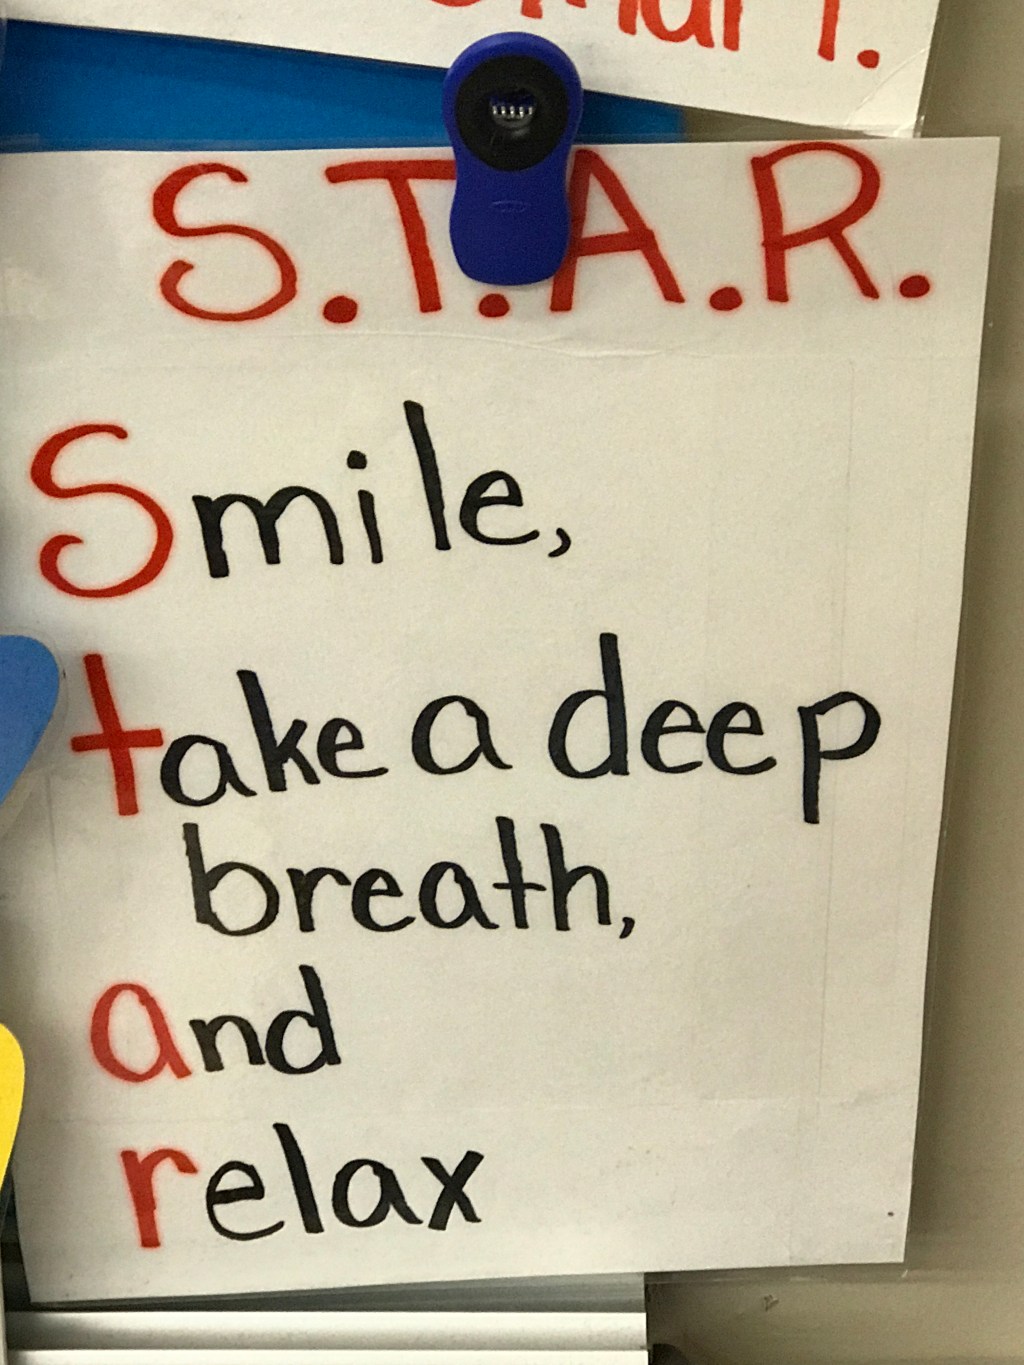 S.T.A.R.
Smile,
take a deep
breath,
and
relax